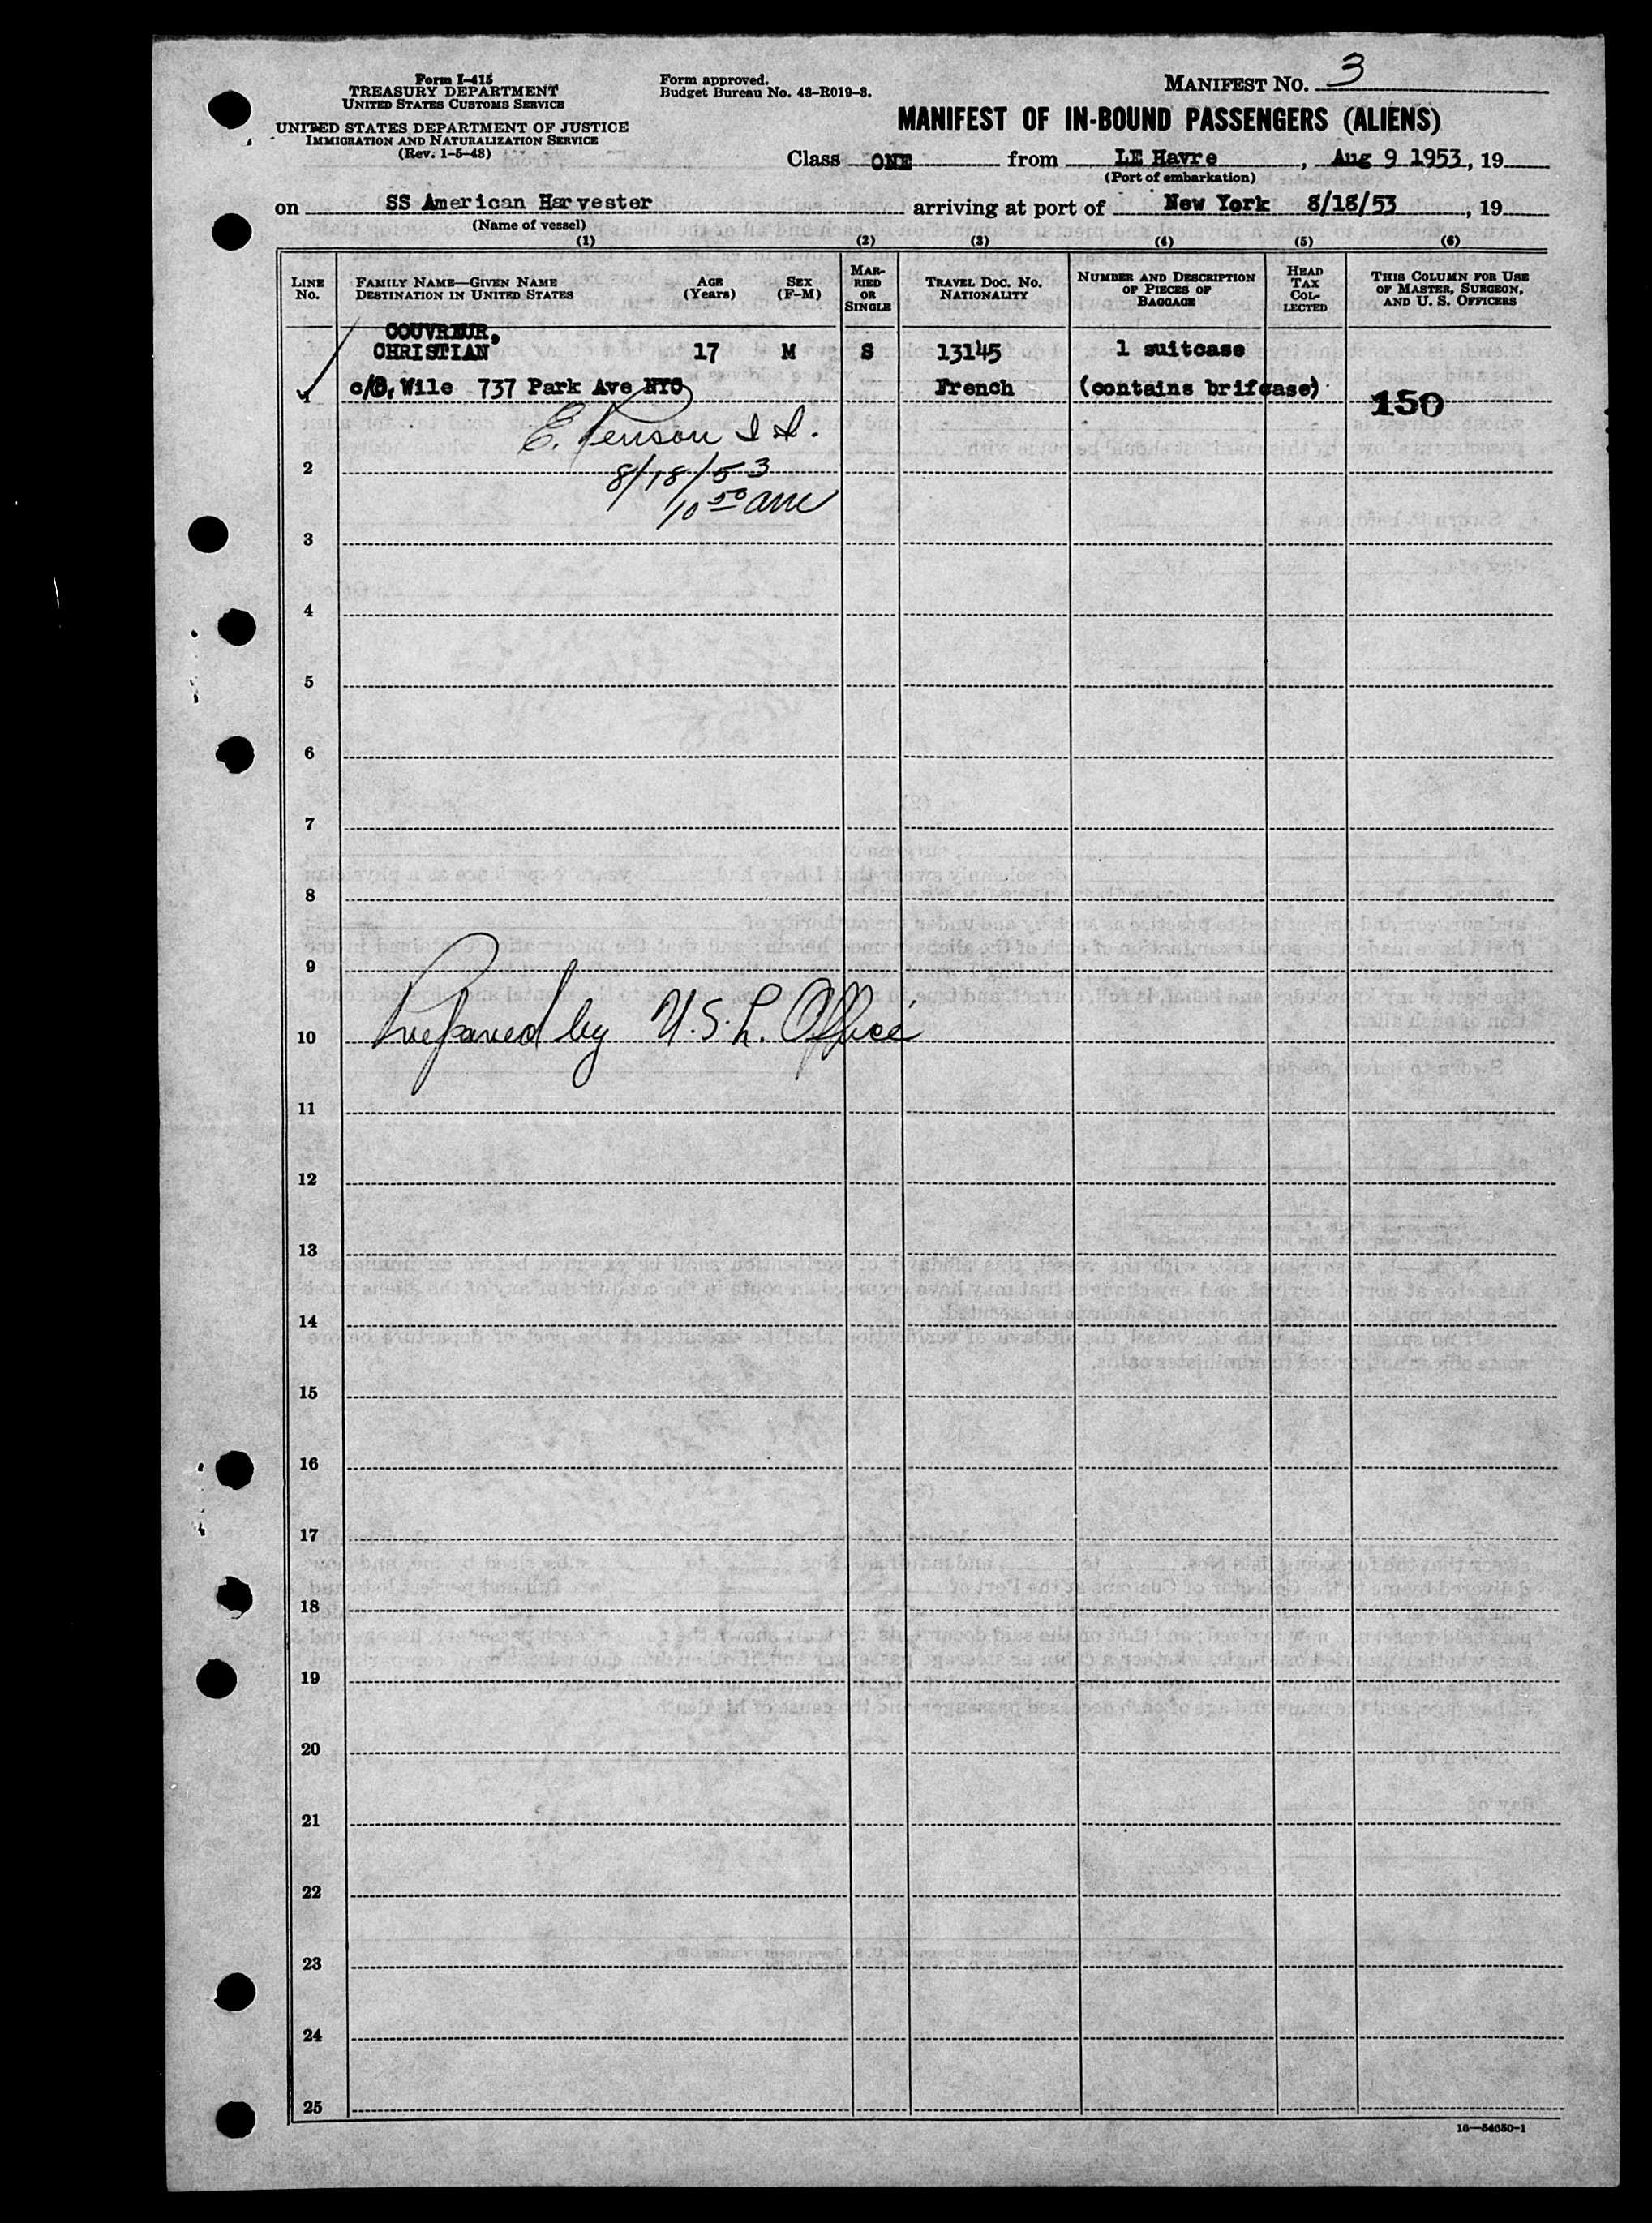 Form I-415
TREASURY DEPARTMENT
UNITED STATES CUSTOMS SERVICE
UNITED STATES DEPARTMENT OF JUSTICE
IMMIGRATION AND NATURALIZATION SERVICE
(Rev. 1-5-48)
Form approved.
Budget Bureau No. 43-R019-3.
MANIFEST NO. 3
MANIFEST OF IN-BOUND PASSENGERS (ALIENS)
Class ONE from LE Havre, Aug 9 1953, 19
(Port of embarkation)
on SS American Harvester arriving at port of New York 8/18/53, 19
(Name of vessel)
(1) (2) (3) (4) (5) (6)
LINE No. FAMILY NAME—GIVEN NAME DESTINATION IN UNITED STATES AGE (Years) SEX (F-M) MARRIED OR SINGLE TRAVEL DOC. NO. NATIONALITY NUMBER AND DESCRIPTION OF PIECES OF BAGGAGE HEAD TAX COLLECTED THIS COLUMN FOR USE OF MASTER, SURGEON, AND U. S. OFFICERS
COUVREUR,
CHRISTIAN 17 M S 13145 1 suitcase
1 c/o. Wile 737 Park Ave NYC French (contains brifcase) 150
E. I I.
2 8/18/53
10 50 am
3
4
5
6
7
8
9
10 Prepared by U.S.L. Office
11
12
13
14
15
16
17
18
19
20
21
22
23
24
25
16—54650-1